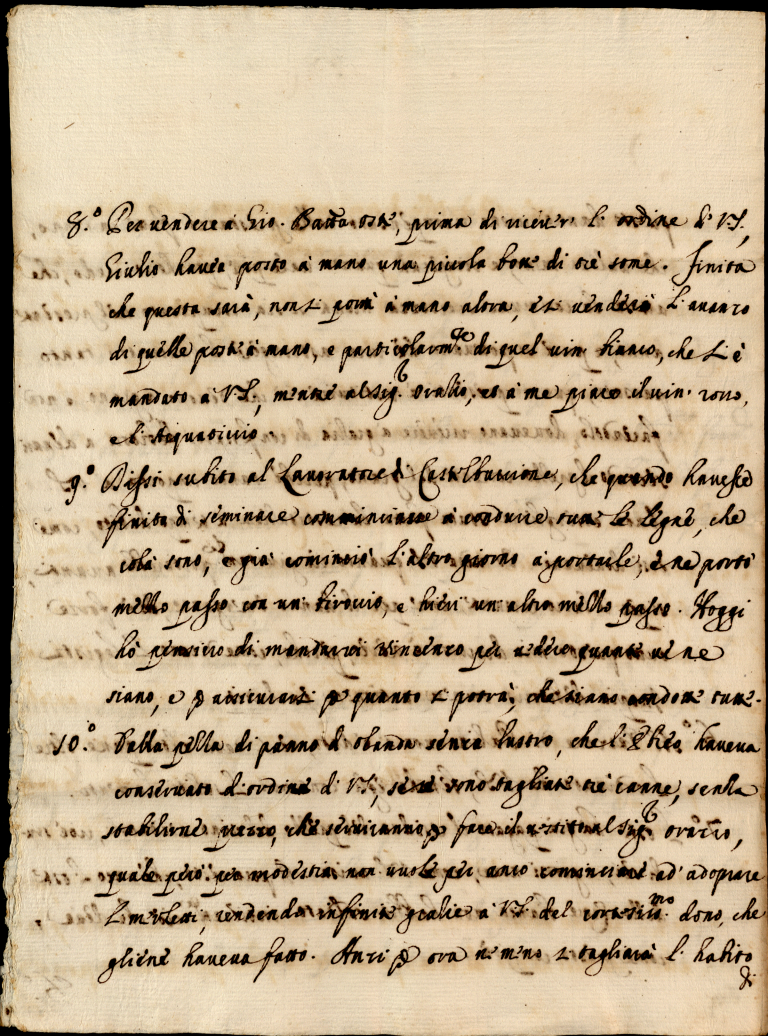 8.º Per vendere à Gio. Batta oste, prima di ricever l'ordine di VS.,
Giulio havea posto à mano una piccola botte di trè some. Finita
che questa sarà, non si porrà à mano altra, et si venderà l'avanzo
di quelle poste à mano, e particolarmte di quel vin bianco, che si è
mandato à VS., mentre al Sigr Oratio, et à me piace il vin rosso,
e l'Acquaticcio.
9.º Dissi subito al Lavoratore di Castelbuccione, che quando havesse
finito di seminare cominciasse à condurre tutte le legne, che
colà sono, e già cominciò l'altro giorno à portarle, e ne portò
mezzo passo con un biroccio, e hieri un altro mezzo passo. Hoggi
hò pensiero di mandarvi Vincenzo per vedere quante ve ne
siano, e p assicurarsi p quanto si potrà, che siano condotte tutte.
10.º Dalla pezza di panno d'Olanda senza lustro, che haveva
conservato d'ordine di VS., se ne sono tagliate trè canne, senza
stabilirne prezzo, che serviranno p fare il vestito al Sigr Oratio,
quale però per modestia non vuole per anco cominciare ad adoprare
i merletti, rendendo infinite gratie à VS. del cortesissmo dono, che
gliene haveva fatto. Anzi p ora nemeno si tagliarà l'habito
di